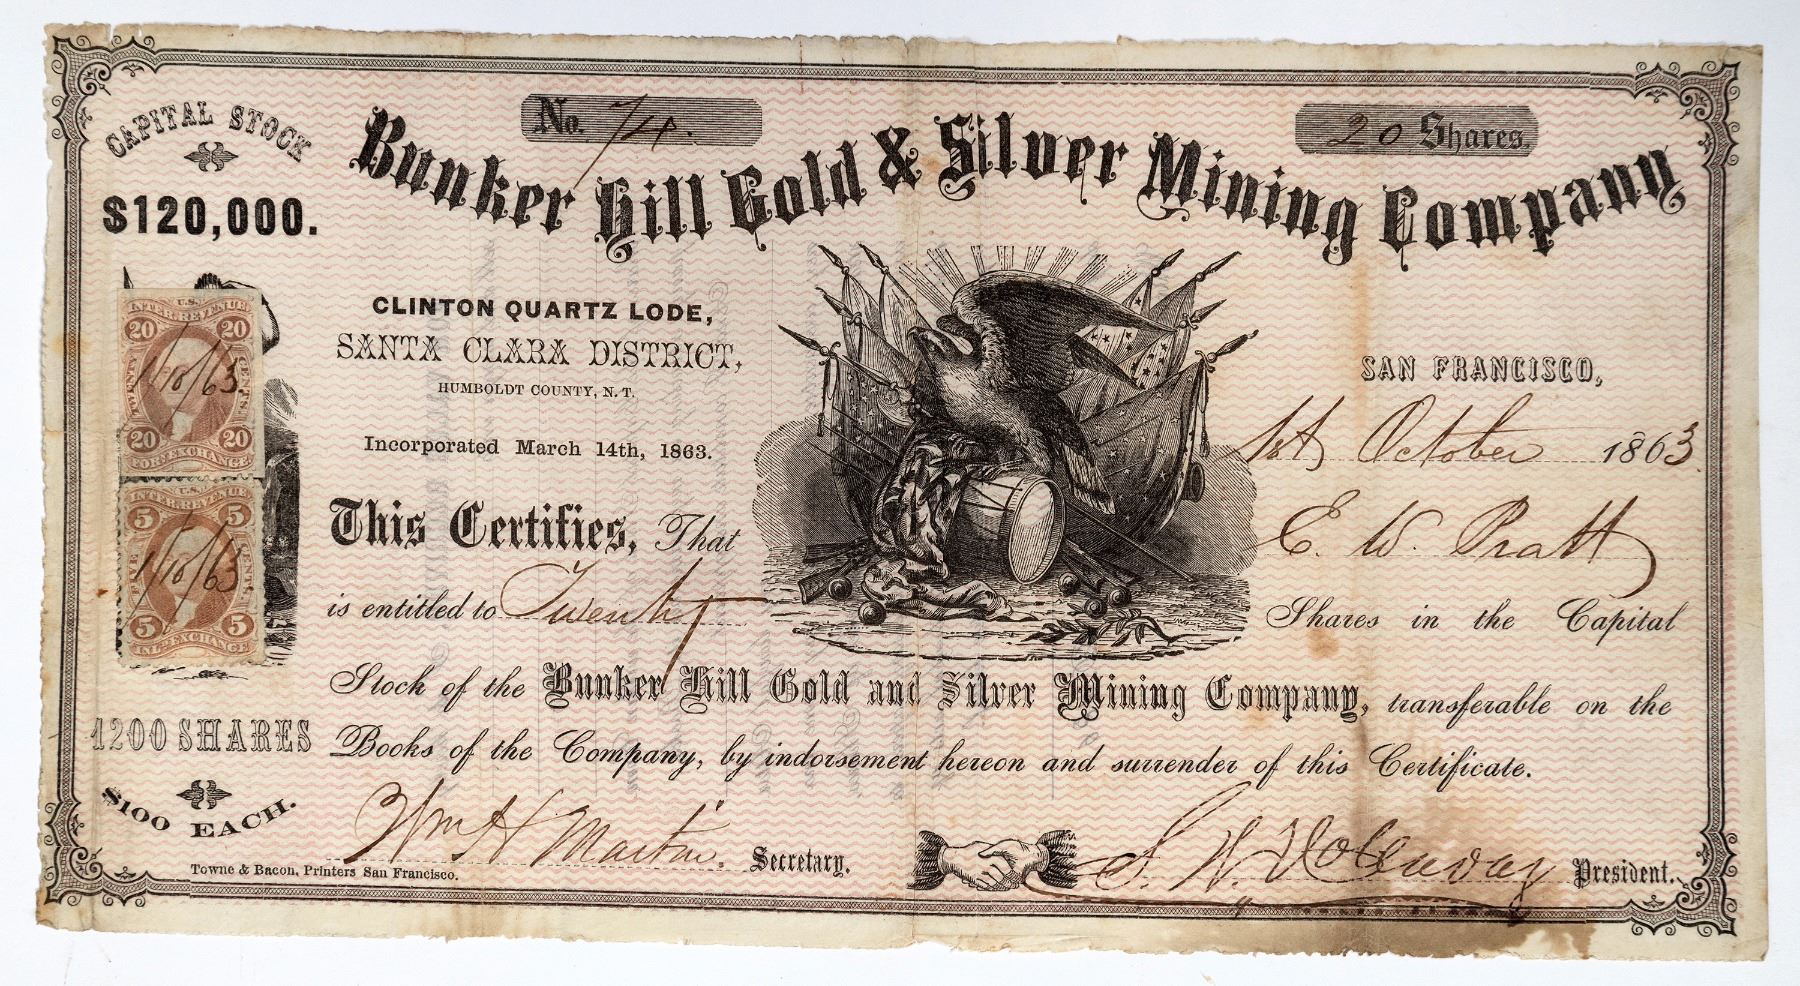 CAPITAL STOCK
$120,000.
No. 74.
20 Shares.
Bunker Hill Gold & Silver Mining Company
CLINTON QUARTZ LODE,
SANTA CLARA DISTRICT,
HUMBOLDT COUNTY, N. T.
Incorporated March 14th, 1863.
SAN FRANCISCO,
1st October 1863
U.S.
INTER. REVENUE
20 20
TWENTY CENTS
1/10/63
20 20
FOR. EXCHANGE
U.S.
INTER. REVENUE
5 5
FIVE CENTS
1/10/63
5 5
INL. EXCHANGE
This Certifies, That E. W. Pratt
is entitled to Twenty Shares in the Capital
Stock of the Bunker Hill Gold and Silver Mining Company, transferable on the
Books of the Company, by indorsement hereon and surrender of this Certificate.
1200 SHARES
$100 EACH.
Wm H Martin. Secretary.
S. W. President.
Towne & Bacon, Printers San Francisco.